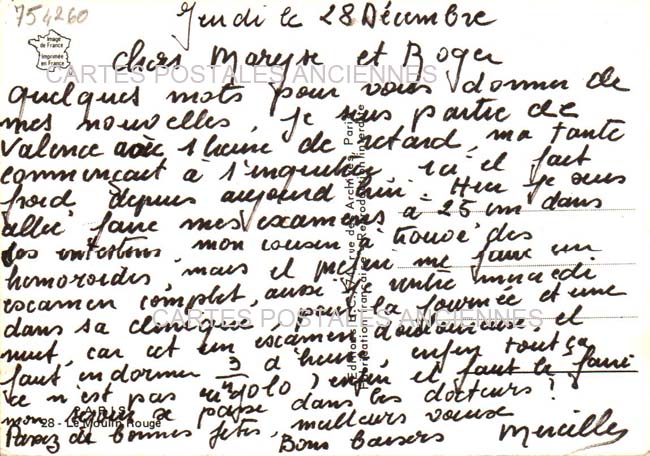 754260
Jeudi le 28 Décembre
Image de France
Imprimée en France
chers Maryse et Roger
CARTES POSTALES ANCIENNES
quelques mots pour vous donner de
mes nouvelles, je suis partie de
Valence avec 1 heure de retard, ma tante
commençait à s'inquiéter, ici il fait
froid depuis aujourd'hui. Hier je suis
allée faire mes examens à 25 cm dans
les intestins, mon cousin a trouvé des
hemoroides, mais il me faire un
examen complet, aussi mercredi
dans sa clinique, pour la journée et une
CARTES POSTALES ANCIENNES
nuit, car cet un examen douloureuse et
faut endormir 3/4 d'heure, enfin tout ça
ce n'est pas rigolo, enfin il faut le faire
mon séjour se passe dans les docteurs ??
PARIS
28 - Le Moulin Rouge
Passez de bonnes fêtes, meilleurs voeux
Bons baisers
Mireille
rue des Archives, Paris
Fabrication française - Reproduction interdite